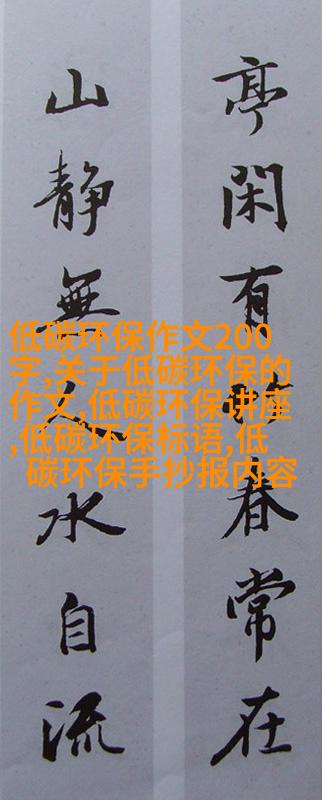 亭閑有春常在
山靜無人水自流
低碳环保作文200
字,关于低碳环保的
作文,低碳环保讲座
,低碳环保标语,低
碳环保手抄报内容